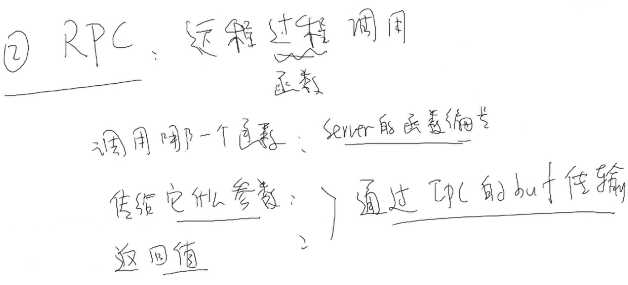 ② RPC：远程过程调用
函数
调用哪一个函数：server的函数编号
传给它什么参数：
通过IPC的buf传输
返回值：